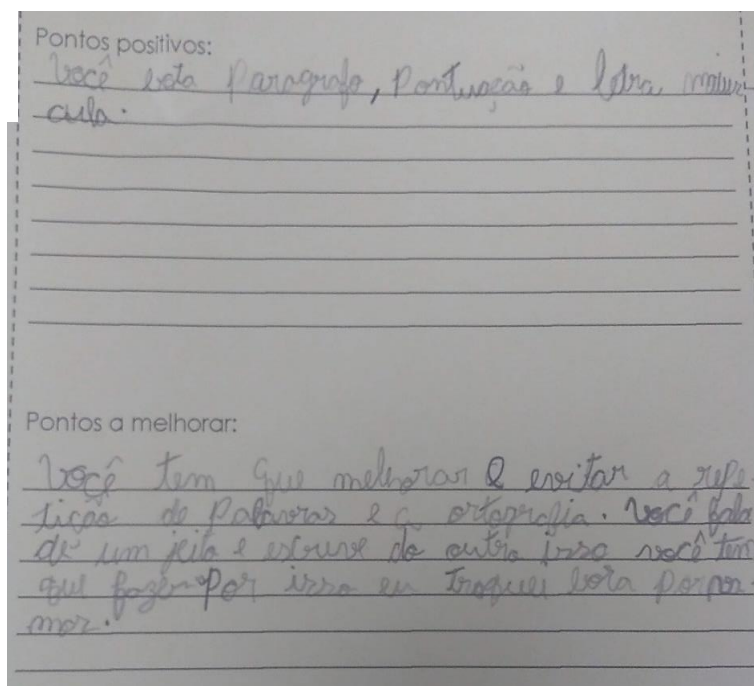 Pontos positivos:
Você bota Paragrafo, Pontuação e letra
cula.
Pontos a melhorar:
Você tem que melhorar e evitar a repe
tição de Palavras e a ortografia. Você fala
de um jeito e escreve do outro isso você tem
que fazer Por isso eu troquei bota por
mos.